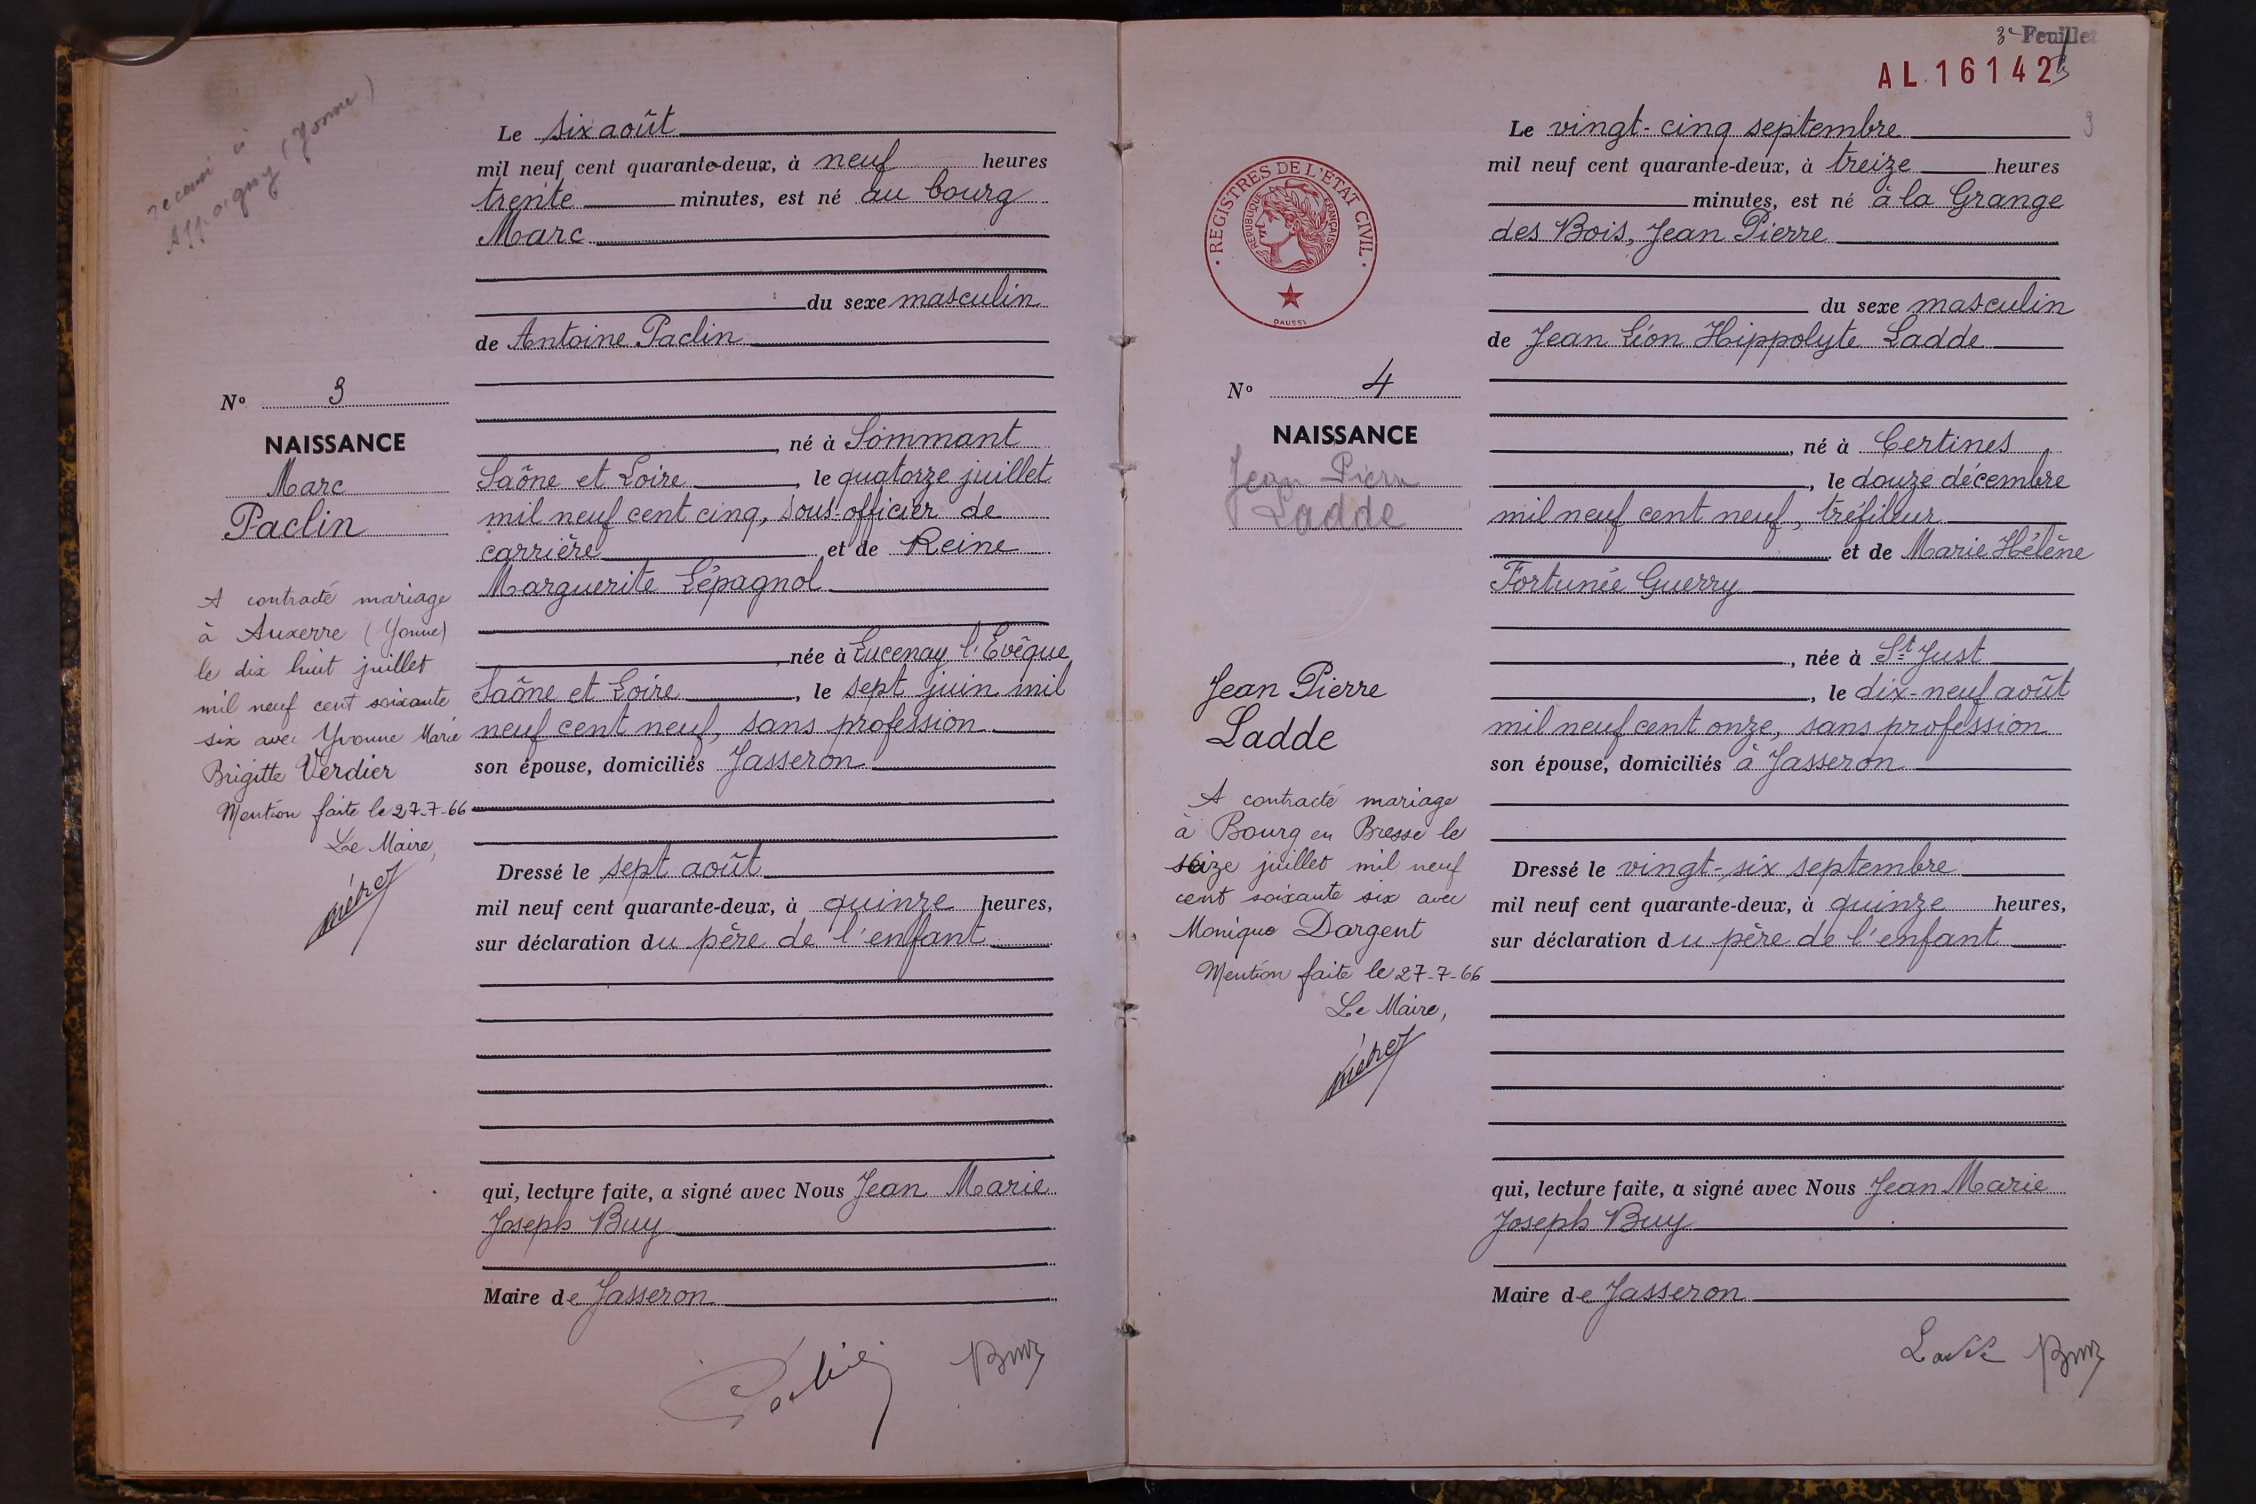 recensé à
Appoigny (Yonne)
Le six août
mil neuf cent quarante-deux, à neuf heures
trente minutes, est né au bourg
Marc
du sexe masculin
de Antoine Paclin
N° 3
NAISSANCE
Marc
Paclin
né à Sommant
Saône et Loire, le quatorze juillet
mil neuf cent cinq, sous-officier de
carrière et de Reine
Marguerite Lépagnol
, née à Lucenay l'Evêque
Saône et Loire, le sept juin mil
neuf cent neuf, sans profession
son épouse, domiciliés Jasseron
A contracté mariage
à Auxerre (Yonne)
le dix huit juillet
mil neuf cent soixante
six avec Yvonne Marie
Brigitte Verdier
Mention faite le 27-7-66
Le Maire,
Dressé le sept août
mil neuf cent quarante-deux, à quinze heures,
sur déclaration du père de l'enfant
qui, lecture faite, a signé avec Nous Jean Marie
Joseph Buy
Maire de Jasseron
Paclin Buy
3e Feuillet
AL.16142
3
Le vingt-cinq septembre
mil neuf cent quarante-deux, à treize heures
minutes, est né à la Grange
des Bois, Jean Pierre
du sexe masculin
de Jean Léon Hippolyte Ladde
REGISTRES DE L'ETAT CIVIL
REPUBLIQUE FRANÇAISE
DAUSSY
N° 4
NAISSANCE
Jean Pierre
Ladde
, né à Certines
, le douze décembre
mil neuf cent neuf, tréfileur
et de Marie Hélène
Fortunée Guerry
, née à St Just
, le dix-neuf août
mil neuf cent onze, sans profession
son épouse, domiciliés à Jasseron
Jean Pierre
Ladde
A contracté mariage
à Bourg en Bresse le
seize juillet mil neuf
cent soixante six avec
Monique Dargent
Mention faite le 27-7-66
Le Maire,
Dressé le vingt-six septembre
mil neuf cent quarante-deux, à quinze heures,
sur déclaration du père de l'enfant
qui, lecture faite, a signé avec Nous Jean Marie
Joseph Buy
Maire de Jasseron
Ladde Buy